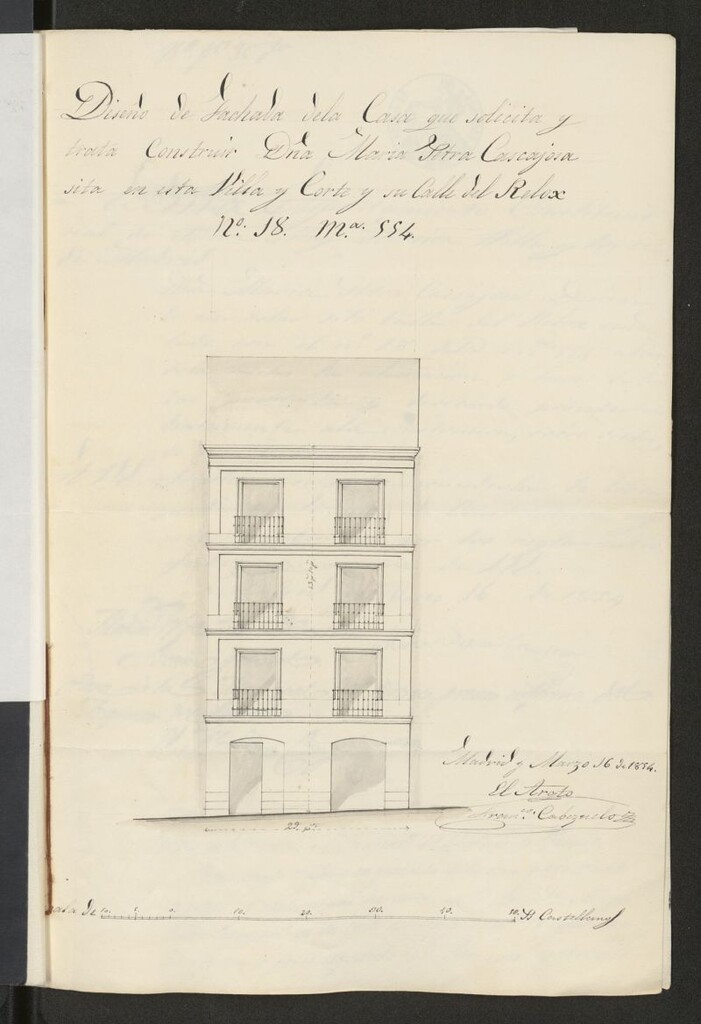 Diseño de Fachada dela Casa que solicita y
trata Construir Dña Maria Petra Cascajosa
sita en esta Villa y Corte y su Calle del Relox
Nº. 18. Mª. 554.
Madrid y Marzo 16 de 1854.
El Arqto
Franco. Cabezuelo
22. ps.
10. 5. 0. 10. 20. 30. 40. 50. Ps Castellanos